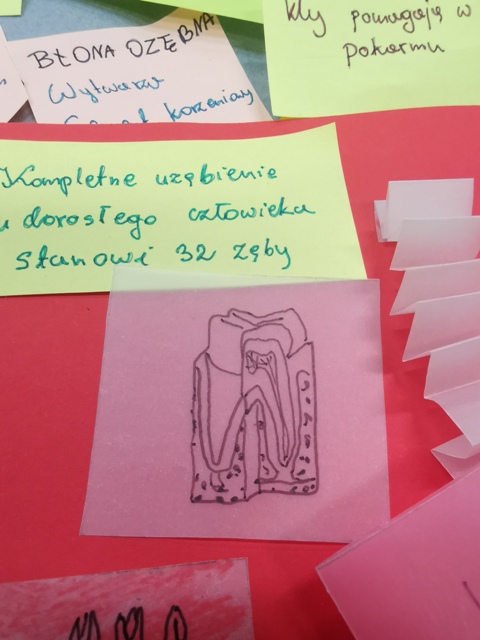 BŁONA OZĘBNA
Wytwarza
korzeniowy
kły pomagają w
pokarmu
Kompletne uzębienie
u dorosłego człowieka
stanowi 32 zęby